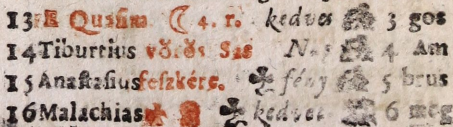 13 E Quasim. ☾ 4. r. kedves 3 gos
14 Tiburtius vöрös Sas Nap 4 Am
15 Anastasius feszkére. ♣ fény 5 brus
16 Malachias ♣ kedvet 6 meg